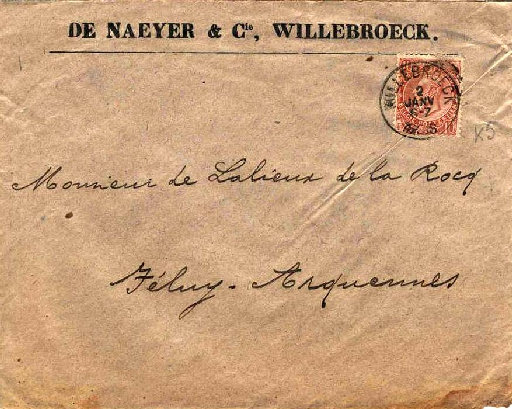 DE NAEYER & Cie, WILLEBROECK.
WILLEBROECK
2
JANV
6-7
K5
Monsieur de Lalieux de la Rocq
Féluy - Arquennes